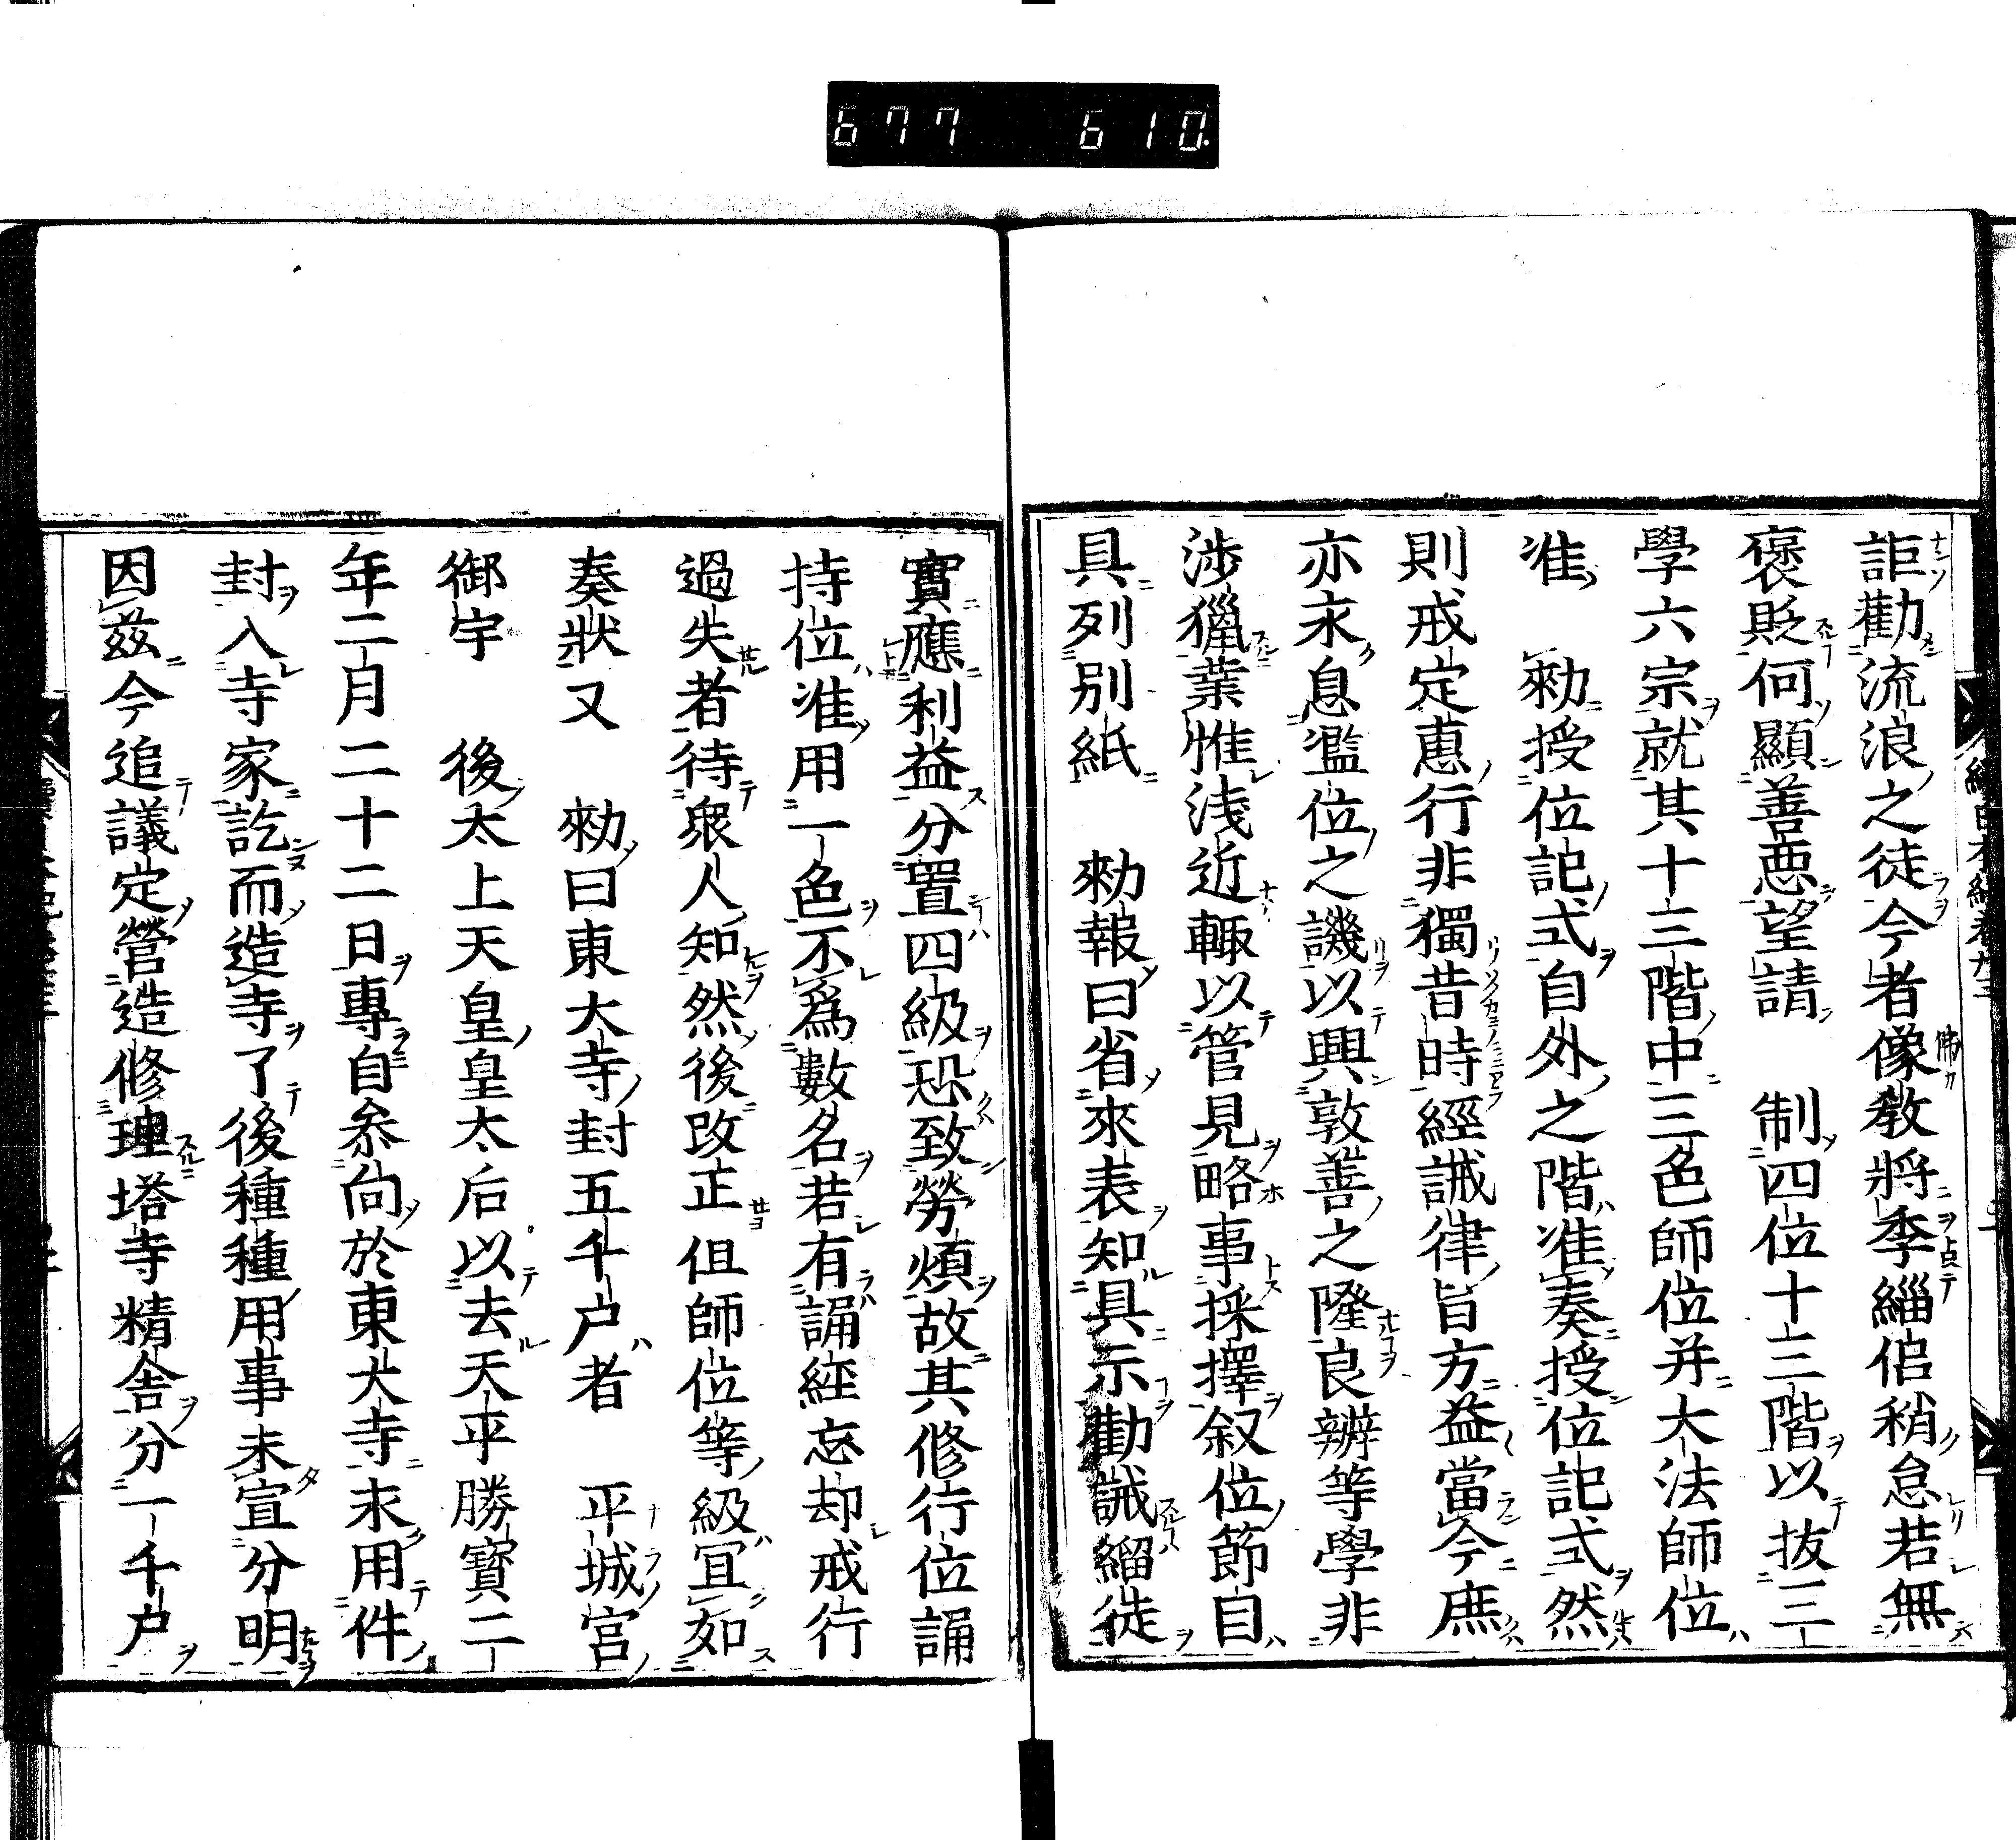 677 610.
詎勸流浪之徒今者像教將季緇侶稍怠若無
褒貶何顯善惡望請 制四位十三階以抜三
學六宗就其十三階中三色師位并大法師位
准 勅授位記式自外之階准奏授位記式然
則戒定惠行非獨昔時經誡律旨方益當今庶
亦永息濫位之譏以興敦善之隆良辨等學非
渉獵業惟浅近輙以管見略事採擇叙位節目
具列別紙 勅報曰省來表知具示勸誡緇徒
實應利益分置四級恐致勞煩故其修行位誦
持位准用一色不爲數名若有誦經忘却戒行
過失者待衆人知然後改正但師位等級冝如
奏狀又 勅曰東大寺封五千户者 平城宮
御宇 後太上天皇皇太后以去天平勝寳二
年二月二十二日專自叅向於東大寺永用件
封入寺家訖而造寺了後種種用事未宣分明
因茲今追議定營造修理塔寺精舎分一千户